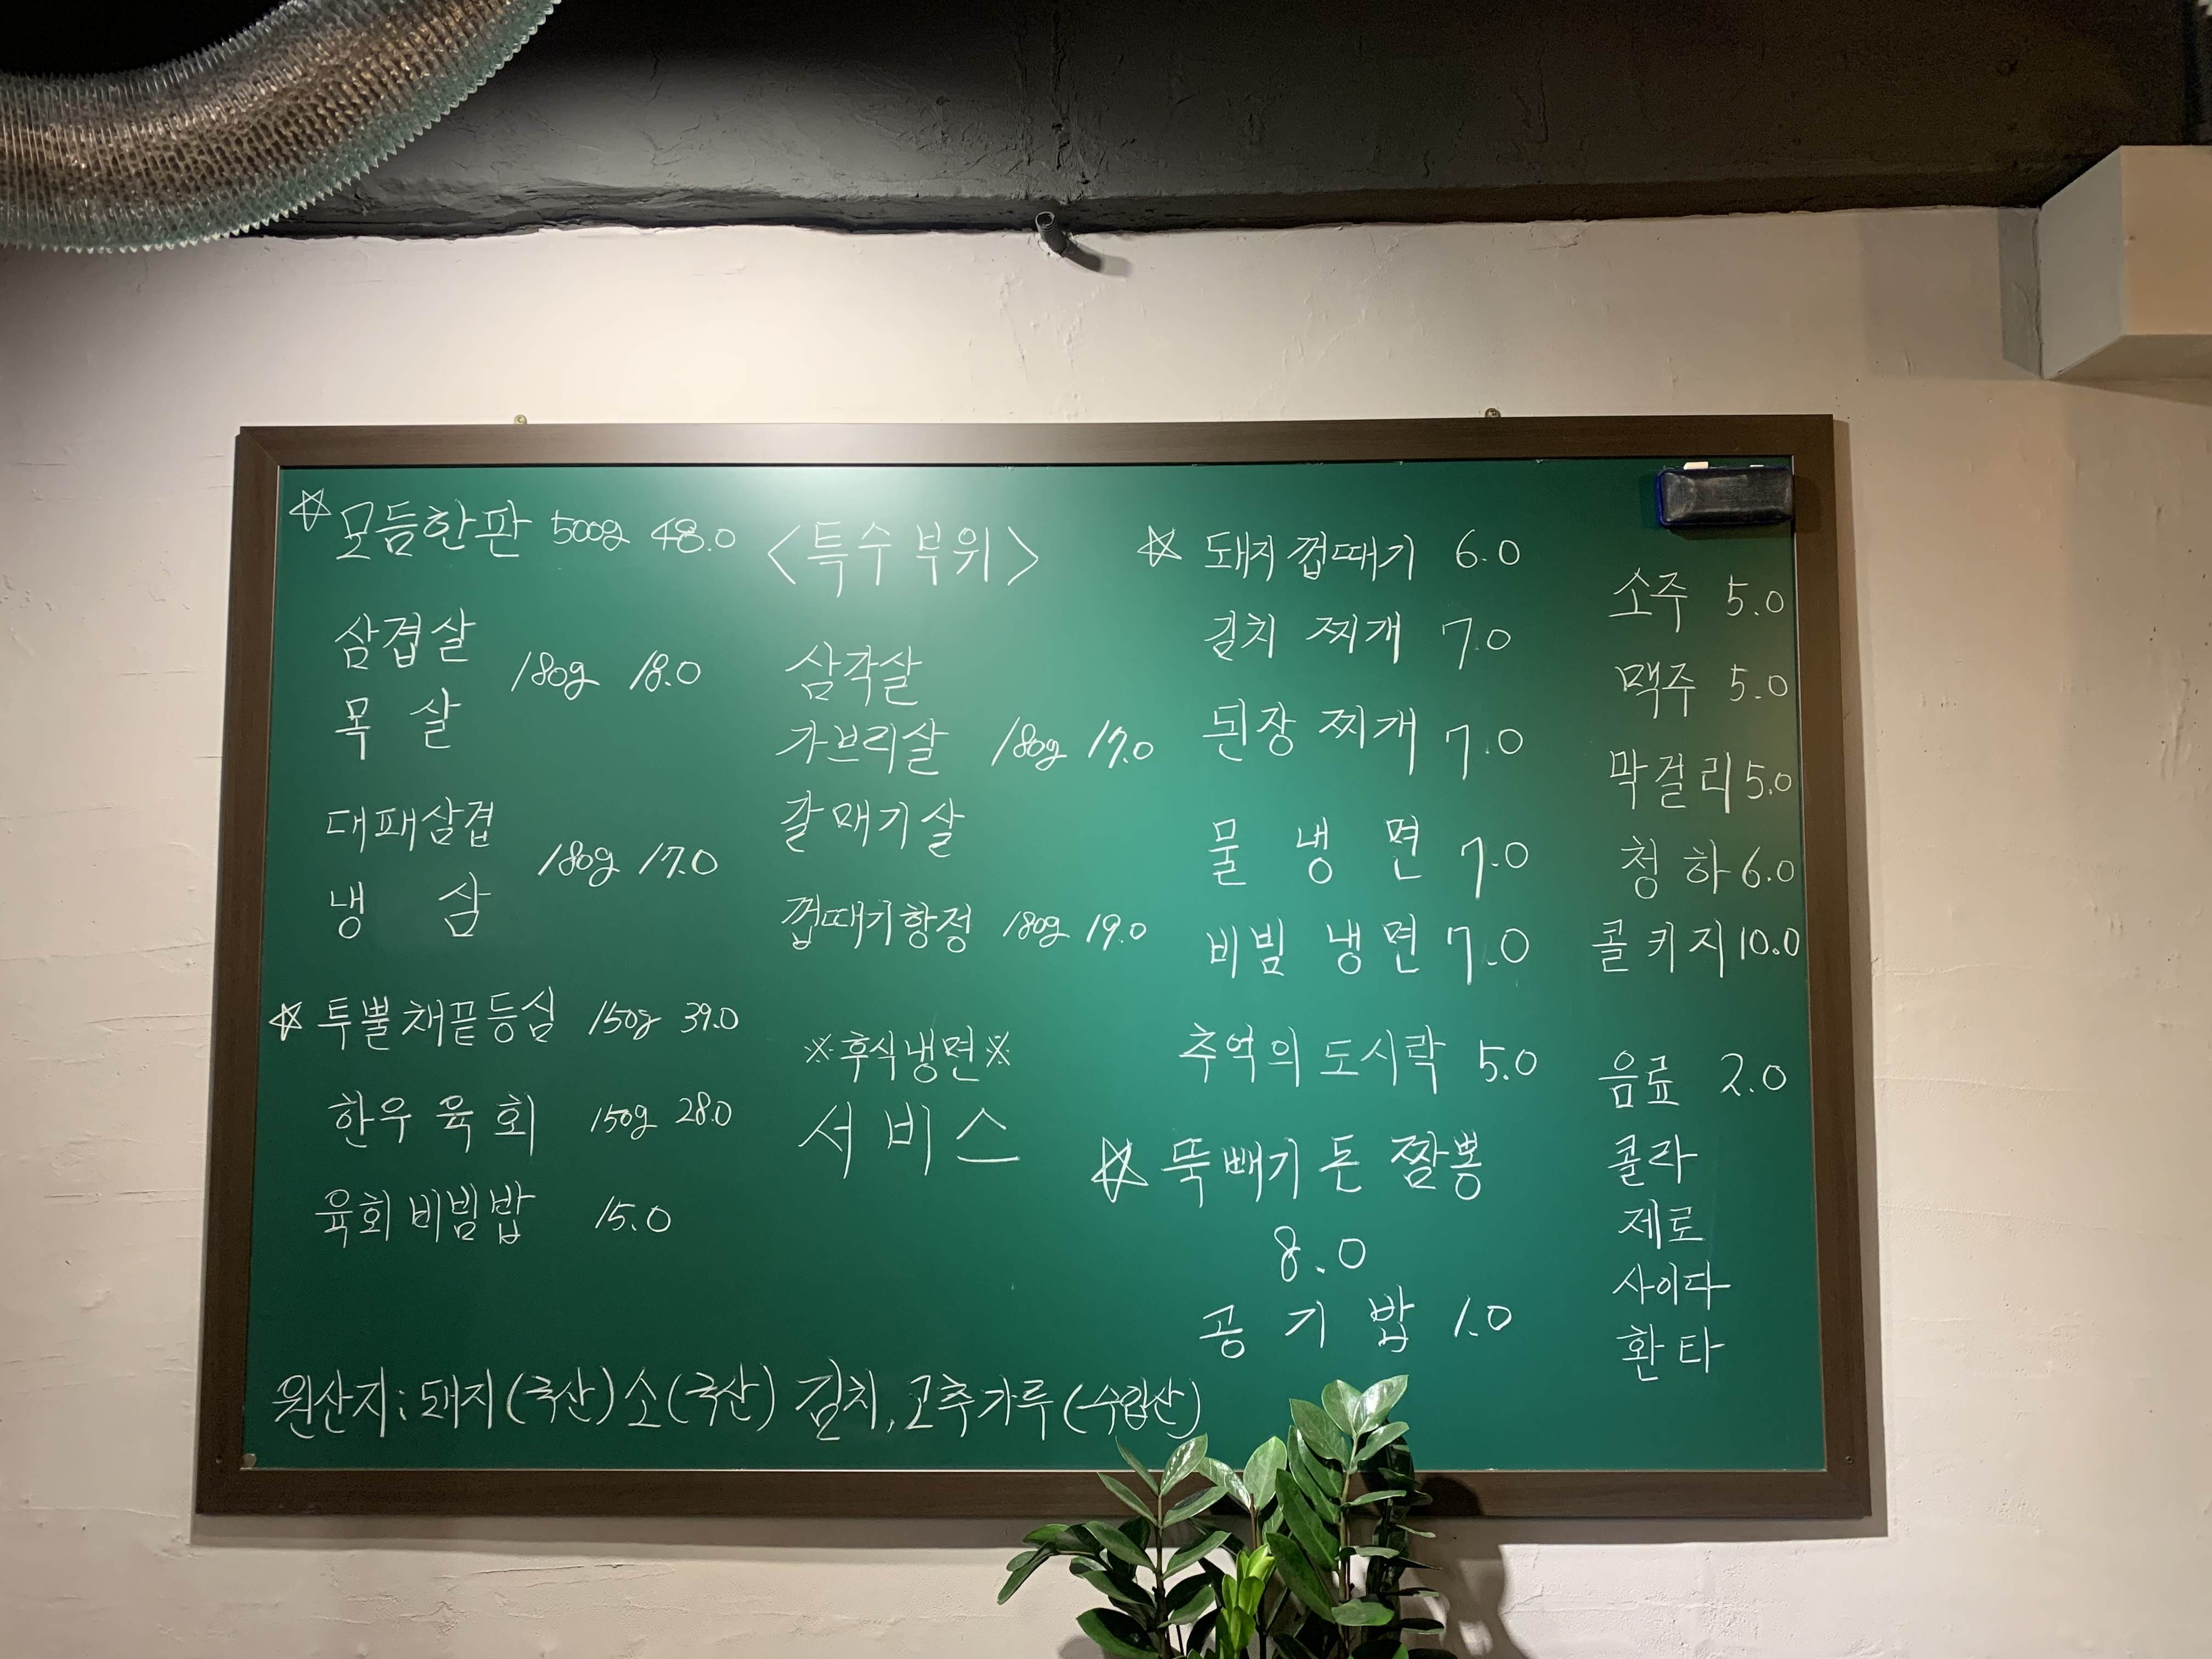 ☆ 모듬한판 500g 48.0
삼겹살
목 살
180g 18.0
대패삼겹
냉 삼
180g 17.0
☆ 투뿔채끝등심 150g 39.0
한우 육회 150g 28.0
육회비빔밥 15.0
<특수부위>
삼각살
가브리살
갈매기살
180g 17.0
껍때기항정 180g 19.0
※후식냉면※
서비스
☆ 돼지껍때기 6.0
김치 찌개 7.0
된장 찌개 7.0
물 냉 면 7.0
비빔 냉면 7.0
추억의 도시락 5.0
☆ 뚝빼기 돈 짬뽕
8.0
공 기 밥 1.0
소주 5.0
맥주 5.0
막걸리 5.0
청 하 6.0
콜키지 10.0
음료 2.0
콜라
제로
사이다
환타
원산지: 돼지(국산) 소(국산) 김치, 고추가루(수입산)